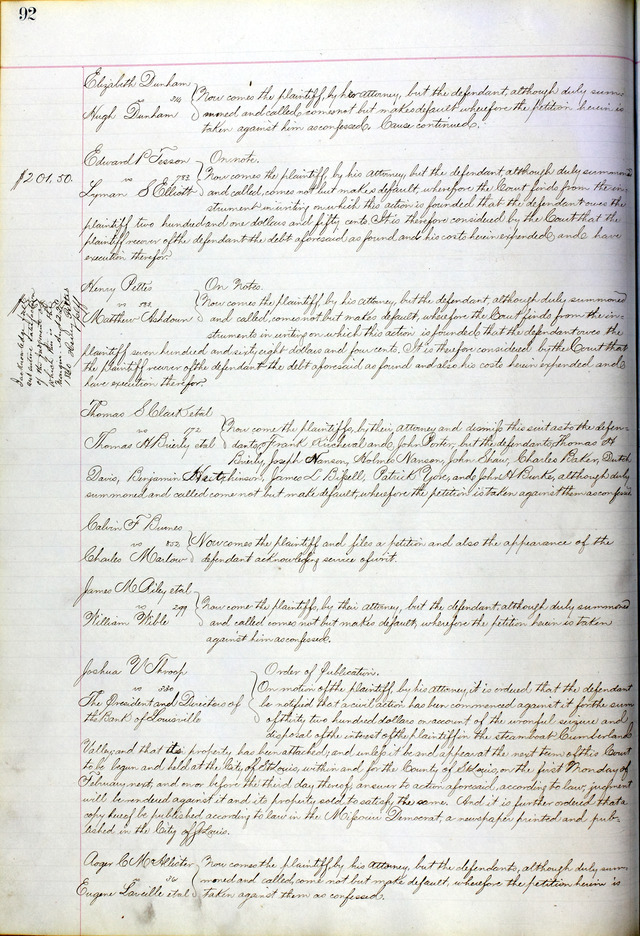 92
Elizabeth Dunham
vs
Hugh Dunham
Now comes the plaintiff, by her attorney, but the defendant, although duly summ
moned and called, comes not but makes default, wherefore the petition herein is
taken against him as confessed. Cause continued.
$201.50.
Edward P Tesson
vs 783
Lyman S Elliott
On note.
Now comes the plaintiff, by his Attorney, but the defendant, although duly summoned
and called, comes not but makes default, wherefore the Court finds from the in-
strument in writing on which this action is founded that the defendant owes the
plaintiff two hundred and one dollars and fifty cents. It is therefore considered by the Court that the
plaintiff recover of the defendant the debt aforesaid as found and his costs herein expended and have
execution therefor.
Henry Pettes
vs
Matthew Ashdown
On Notes.
Now comes the plaintiff, by his Attorney, but the defendant, although duly summoned
and called, comes not but makes default, wherefore the Court finds from the in-
struments in writing on which this action is founded that the defendant owes the
plaintiff seven hundred and sixty eight dollars and four cents. It is therefore considered by the Court that
the plaintiff recover of the defendant the debt aforesaid as found and also his costs herein expended, and
have execution therefor.
Thomas S Clark etal
vs
Thomas H Brierly etal
Now come the plaintiffs, by their attorney and dismiss this suit as to the defen-
dants Frank and John Porter, but the defendants Thomas H
Brierly, Joseph Nanson, Holmes Nanson, John Shaw, Charles Baker,
Davis, Benjamin James L Bissell, Patrick Yore, and John H Burke, although duly
summoned and called come not but make default, wherefore the petition is taken against them as confessed
Calvin F Burnes
vs 852
Charles Marlow
Now comes the plaintiff and files a petition and also the appearance of the
defendant acknowledging service of writ.
James M Riley etal
vs 299
William Weble
Now come the plaintiffs, by their attorney, but the defendant, although duly summoned
and called comes not but makes default, wherefore the petition herein is taken
against him as confessed.
Joshua V Throop
vs 330
The President and Directors of
the Bank of Louisville
Order of Publication.
On motion of the plaintiff by his attorney, it is ordered that the defendant
be notified that a civil action has been commenced against it for the sum
of thirty two hundred dollars on account of the wrongful seizure and
disposal of the interest of the plaintiff in the steamboat Cumberland
Valley, and that its property has been attached, and unless it be and appear at the next term of this Court
to be begun and held at the City of St Louis, within and for the County of St Louis, on the first Monday of
February next, and on or before the third day thereof, answer to action aforesaid, according to law, judgment
will be rendered against it and its property sold to satisfy the same. And it is further ordered that a
copy hereof be published according to law in the Missouri Democrat, a newspaper printed and pub-
lished in the City of St Louis.
Roger C McAllister
vs 36
Eugene Laveille etal
Now comes the plaintiff, by his attorney, but the defendants, although duly sum-
moned and called, come not but make default, wherefore the petition herein is
taken against them as confessed.